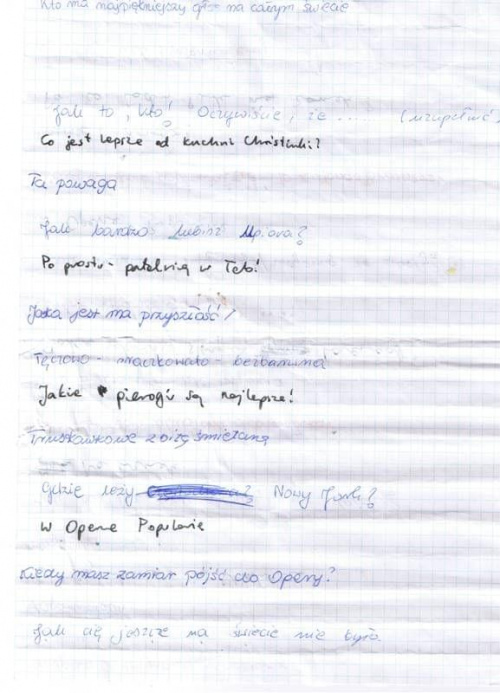 Kto ma najpiękniejszy głos na całym świecie
Jak to, kto! Oczywiście, że .... (uzupełnić)
Co jest lepsze od kuchni Christinki?
Ta powaga
Jak bardzo lubisz Upiora?
Po prostu - patelnią w łeb!
Jaka jest ma przyszłość?
Tęczowo - mraczkowato - bezbarwna
Jakie pierogi są najlepsze!
Truskawkowe z bitą śmietaną
Gdzie leży Nowy Jork?
W Operze Populaire
Kiedy masz zamiar pójść do Opery?
Jak cię jeszcze na świecie nie było.